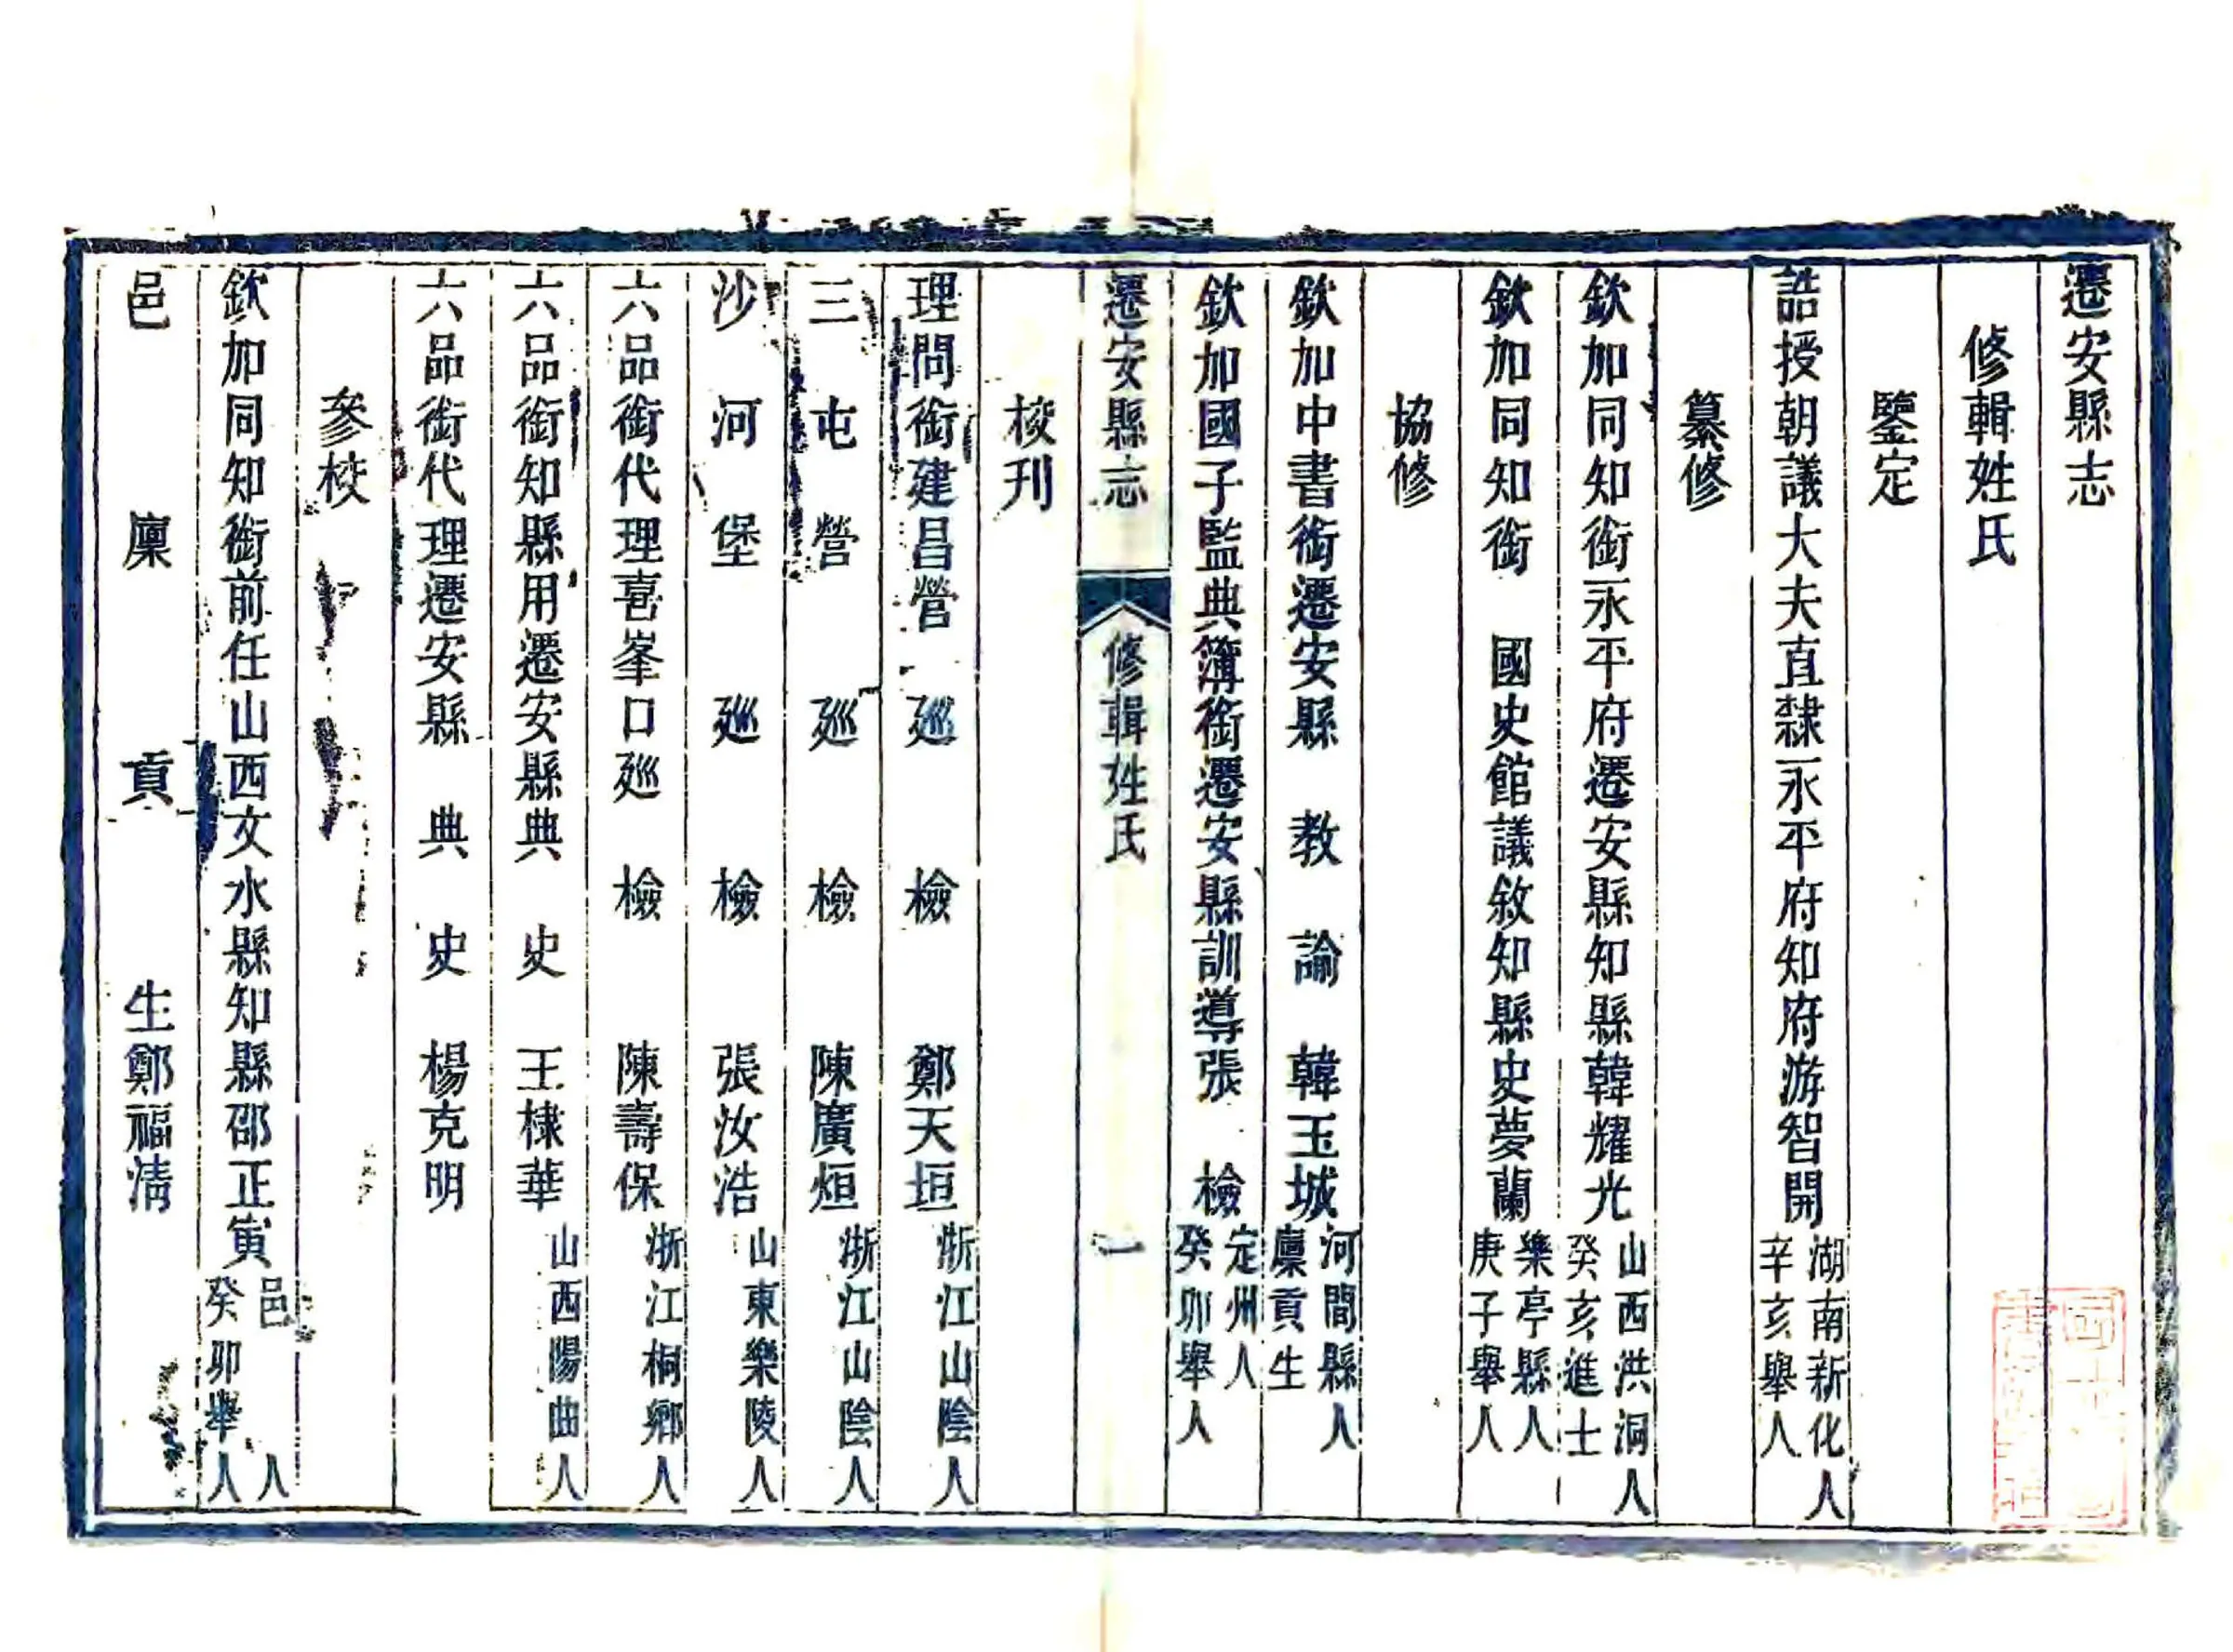 遷安縣志
修輯姓氏
鑒定
誥授朝議大夫直隸永平府知府游智開湖南新化人辛亥舉人
纂修
欽加同知銜永平府遷安縣知縣韓耀光山西洪洞人癸亥進士
欽加同知銜　國史館議敘知縣史夢蘭樂亭縣人庚子舉人
協修
欽加中書銜遷安縣教諭韓玉城河間縣人廩貢生
欽加國子監典簿銜遷安縣訓導張檢定州人癸卯舉人
遷安縣志　修輯姓氏　一
校刊
理問銜建昌營廵檢鄭天垣浙江山陰人
三屯營廵檢陳廣烜浙江山陰人
沙河堡廵檢張汝浩山東樂陵人
六品銜代理喜峯口廵檢陳壽保浙江桐鄉人
六品銜知縣用遷安縣典史王棣華山西陽曲人
六品銜代理遷安縣典史楊克明
參校
欽加同知銜前任山西文水縣知縣邵正寅邑人癸卯舉人
邑廩貢生鄭福淸